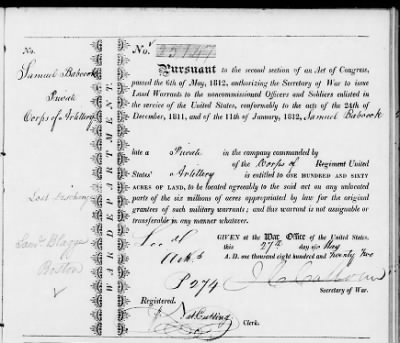 No.
Samuel Babcock
Private
Corps of Artillery
Lost Discharge
Saml Blagge
Boston
WAR DEPARTMENT.
No. 25147
Pursuant to the second section of an Act of Congress,
passed the 6th of May, 1812, authorizing the Secretary of War to issue
Land Warrants to the noncommissioned Officers and Soldiers enlisted in
the service of the United States, conformably to the acts of the 24th of
December, 1811, and of the 11th of January, 1812, Samuel Babcock
late a Private in the company commanded by
of the Corps of Regiment United
States' Artillery is entitled to ONE HUNDRED AND SIXTY
ACRES OF LAND, to be located agreeably to the said act on any unlocated
parts of the six millions of acres appropriated by law for the original
grantees of such military warrants; and this warrant is not assignable
or transferable in any manner whatever.
GIVEN at the War Office of the United States,
this 27th day of May
A. D. one thousand eight hundred and Twenty Two
274
J C Calhoun
Secretary of War.
Registered.
Nat Cutting
Clerk.